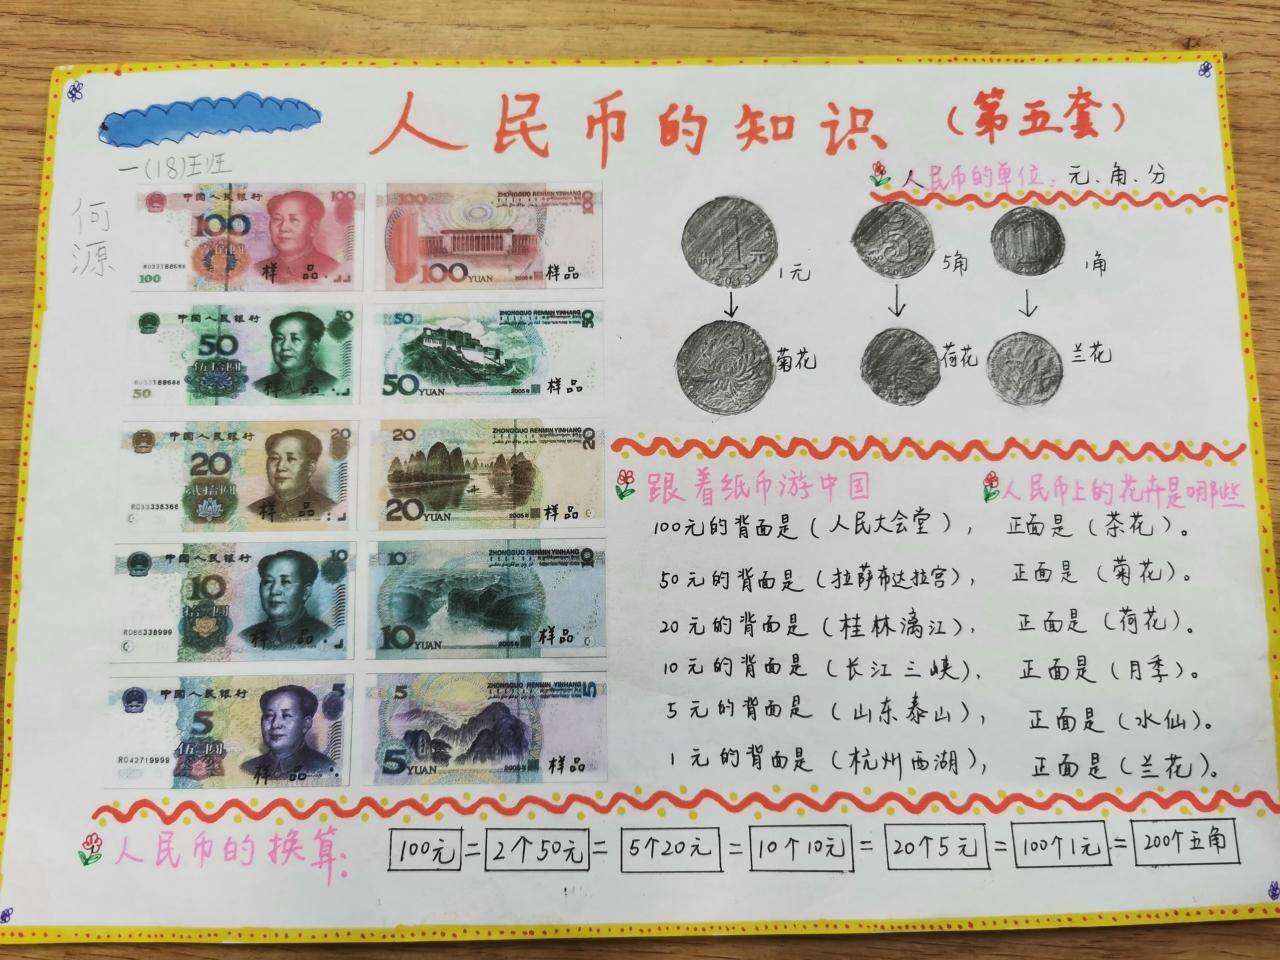 人民币的知识（第五套）
一(18)班
何源
人民币的单位：元、角、分
1元
5角
1角
菊花
荷花
兰花
中国人民银行
100
100
样品
100
ZHONGGUO RENMIN YINHANG
100
100 YUAN
2005年
样品
中国人民银行
50
50
样品
50
50
ZHONGGUO RENMIN YINHANG
50
50 YUAN
2005年
样品
中国人民银行
20
20
样品
20
ZHONGGUO RENMIN YINHANG
20
20 YUAN
2005年
样品
中国人民银行
10
10
样品
10
ZHONGGUO RENMIN YINHANG
10
10 YUAN
2005年
样品
中国人民银行
5
5
样品
5
ZHONGGUO RENMIN YINHANG
5
5 YUAN
2005年
样品
跟着纸币游中国
人民币上的花卉是哪些
100元的背面是（人民大会堂），正面是（茶花）。
50元的背面是（拉萨布达拉宫），正面是（菊花）。
20元的背面是（桂林漓江），正面是（荷花）。
10元的背面是（长江三峡），正面是（月季）。
5元的背面是（山东泰山），正面是（水仙）。
1元的背面是（杭州西湖），正面是（兰花）。
人民币的换算：
100元=2个50元=5个20元=10个10元=20个5元=100个1元=200个五角